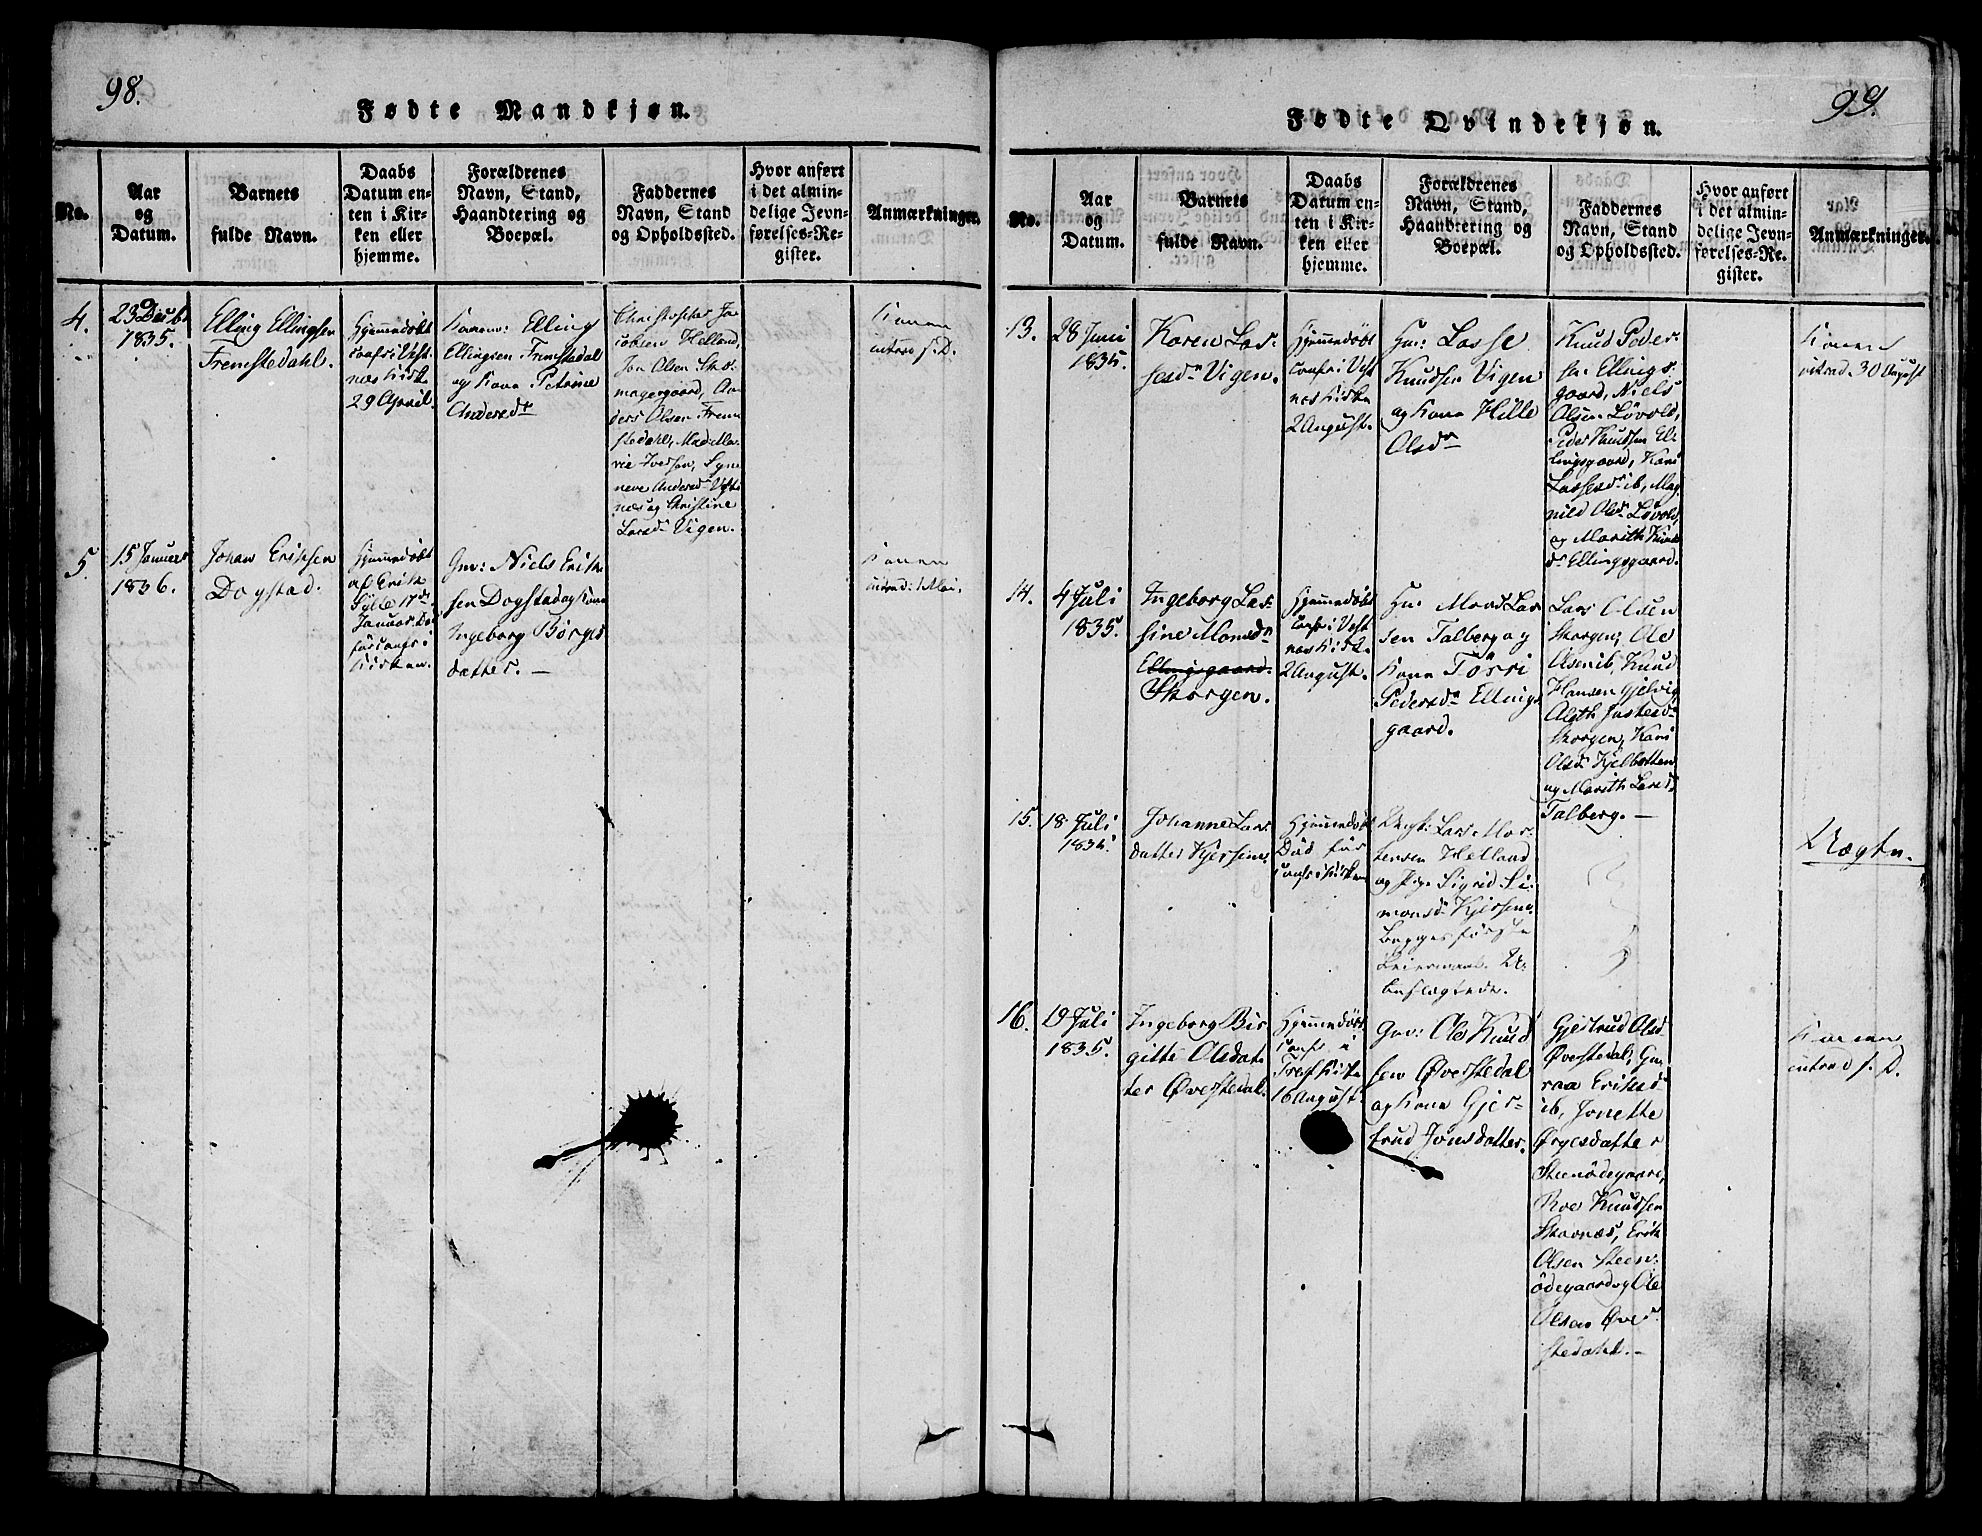 98.
Fødte Mandkjøn.
No.
Aar
og
Datum.
Barnets
fulde Navn.
Daabs
Datum en-
ten i Kir-
ken eller
hjemme.
Forældrenes
Navn, Stand,
Haandtering og
Boepæl.
Faddernes
Navn, Stand
og Opholdssted.
Hvor anført
i det almin-
delige Jevn-
førelses-Re-
gister.
Anmærkninger.
4.
23 Decbr
1835.
Elling Ellingsen
Fremstedahl.
Hjemmedøbt
confr: i Vest
næs Kirke
29 April.
Elling
Ellingsen Fremstedal
og Kone Petrine
Andersdr
Christopher Ja-
cobsen Helland,
Jon Olsen Sko-
magergaard, An-
ders Olsen Frem
stedahl, Mad: Ma-
rie Iversen, Syn
neve Andersdr Vest
næs og Christine
Larsdr Vigen.
Konen
introd f. D.
5.
15 Januar
1836.
Johan Eriksen
Dogstad.
Hjemmedøbt
af Erik
Sylte 17de
Januar. Død
før confr: i
Kirken.
Gm: Niels Erik-
sen Dogstad og Kone
Ingeborg Børges
datter. —
Konen
introd: 1 Mai.
99.
Fødte Qvindekjøn.
No.
Aar
og
Datum.
Barnets
fulde Navn.
Daabs
Datum en-
ten i Kir-
ken eller
hjemme.
Forældrenes
Navn, Stand,
Haandtering og
Boepæl.
Faddernes
Navn, Stand
og Opholdssted.
Hvor anført
i det almin-
delige Jevn-
førelses-Re-
gister.
Anmærkninger.
13.
28 Juni
1835.
Karen Las-
sesdr Vigen.
Hjemmedøbt
confr: i Vest
næs Kirke
2 August.
Hm: Lasse
Knudsen Vigen
og Kone Hille
Olsdr
Knud Peder-
sen Ellings-
gaard, Niels
Olsen Løvold,
Peder Knudsen El-
lingsgaard, Kari
Lassesdr ib, Mag
nild Olsdr Løvold,
og Marith Knuds
dr Ellingsgaard.
Konen
introd. 30 August
14.
4 Juli
1835.
Ingeborg Las-
sine Monsdr
Ellingsgaard.
Skorgen.
Hjemmedøbt
confr: i Vest
næs Kirke
2 August.
Hm: Mons Las
sen Talberg og
Kone Torri
Pedersdr Ellings
gaard.
Lars Olsen
Skorgen, Ole
Olsen ib, Knud
Hansen Gjelvig
Skorgen, Kari
Olsdr Kjelbotten
og Marith Larsdr
Talberg. —
15.
18 Juli
1835.
Johanne Lars
datter Kjersem.
Hjemmedøbt
Død før
confr i Kirken
Ungk: Lars Mor-
tensen Helland
og Pige Sigrid Si-
monsdr Kjersem.
Begges første
Leiermaal. U-
beslægtede.
Uægte.
16.
19 Juli
1835.
Ingeborg Bir
gitte Olsdat
ter Øverstedal.
Hjemmedøbt
confr i
Tresf Kirke
16 August.
Gm: Ole Knud
sen Øverstedal
og Kone Gjer-
trud Jonsdatter.
Gjertrud Olsdr
Øverstedal, Gu-
roa Eriksdr
ib, Jonette
Ørgesdatter
Steenødegaard,
Roe Knudsen
Skavnæs, Erik
Olsen Steen-
ødegaard og Ole
Olsen Øver-
stedahl. —
Konen
introd f. D.